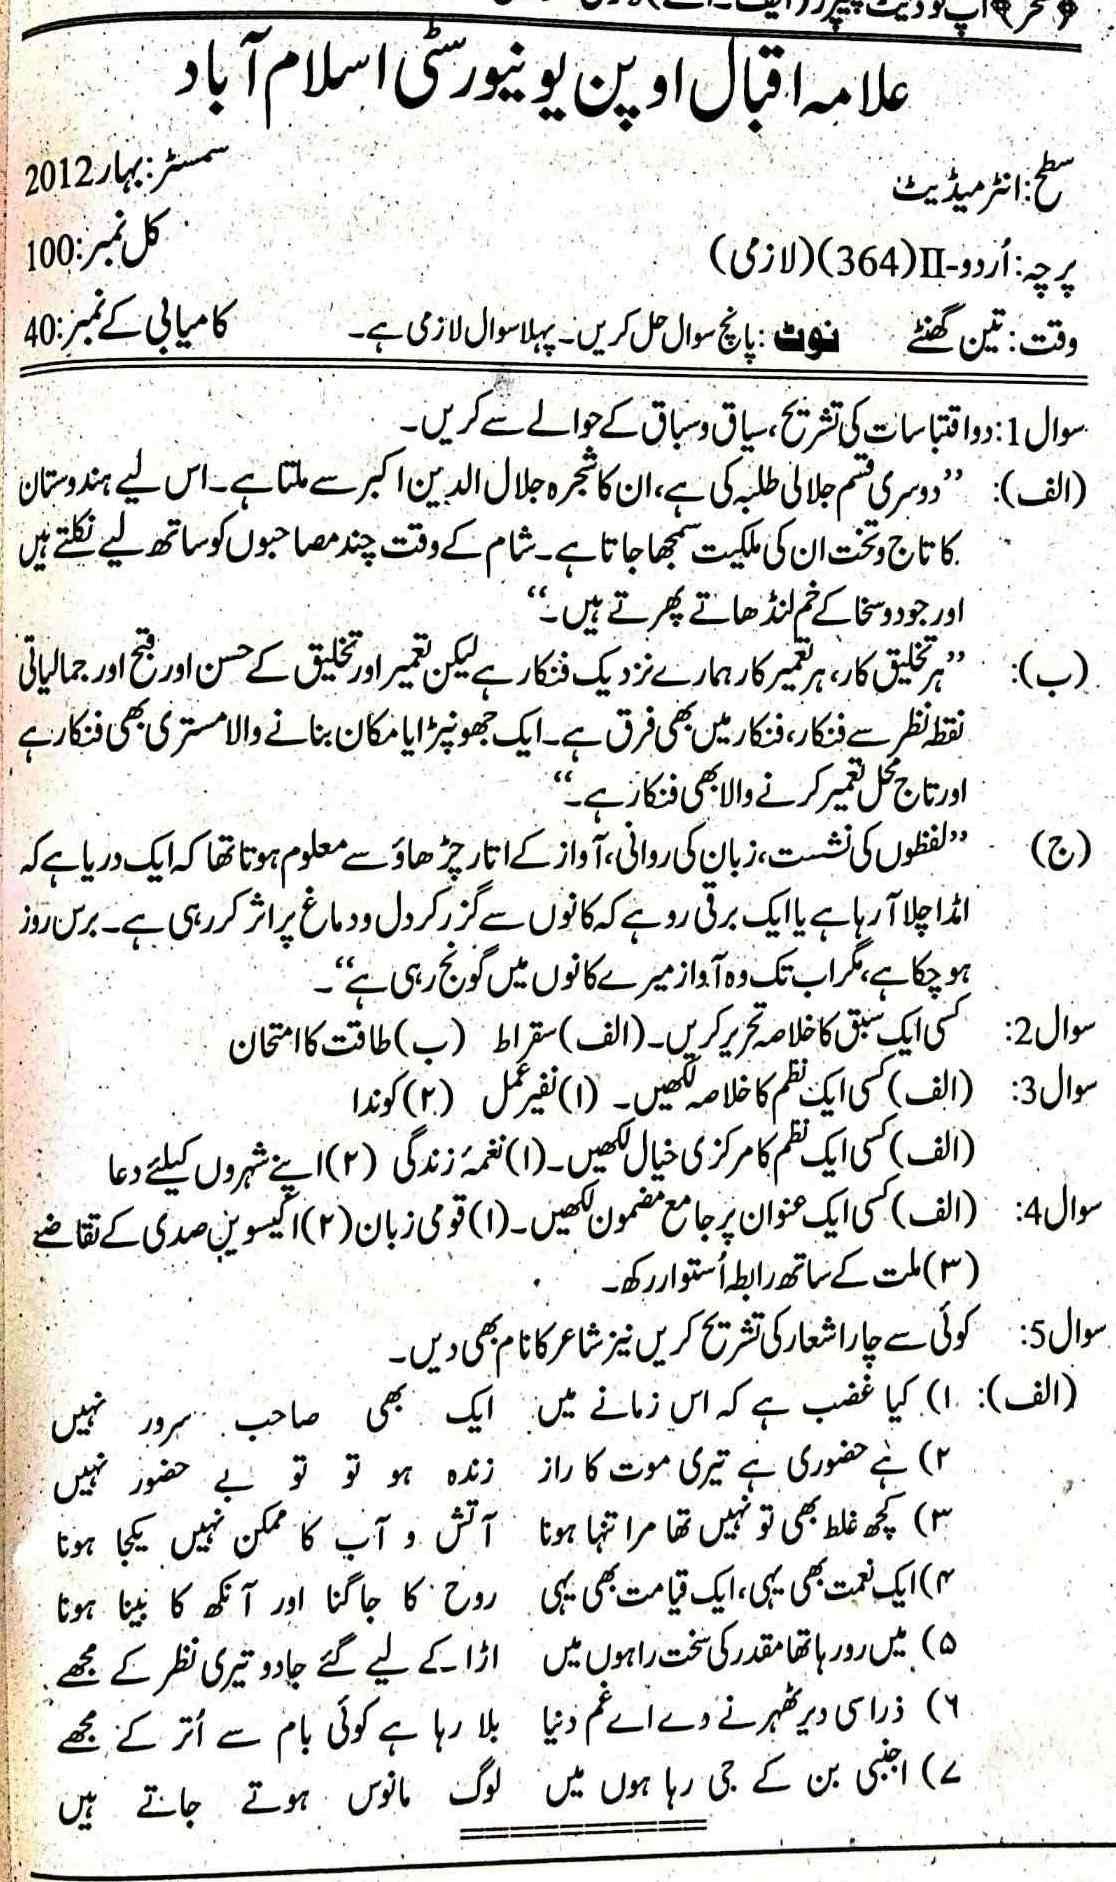 علامہ اقبال اوپن یونیورسٹی اسلام آباد
سطح: انٹرمیڈیٹ سمسٹر: بہار 2012
پرچہ: اُردو-II (364) (لازمی) کل نمبر: 100
وقت: تین گھنٹے نوٹ: پانچ سوال حل کریں۔ پہلا سوال لازمی ہے۔ کامیابی کے نمبر: 40
سوال 1: دو اقتباسات کی تشریح، سیاق و سباق کے حوالے سے کریں۔
(الف): ’’دوسری قسم جلالی طلبہ کی ہے، ان کا شجرہ جلال الدین اکبر سے ملتا ہے۔ اس لیے ہندوستان
کا تاج و تخت ان کی ملکیت سمجھا جاتا ہے۔ شام کے وقت چند مصاحبوں کو ساتھ لیے نکلتے ہیں
اور جود و سخا کے خم لنڈھاتے پھرتے ہیں۔‘‘
(ب): ’’ہر تخلیق کار، ہر تعمیر کار ہمارے نزدیک فنکار ہے لیکن تعمیر اور تخلیق کے حسن اور قبح اور جمالیاتی
نقطہ نظر سے فنکار، فنکار میں بھی فرق ہے۔ ایک جھونپڑا یا مکان بنانے والا مستری بھی فنکار ہے
اور تاج محل تعمیر کرنے والا بھی فنکار ہے۔‘‘
(ج) ’’لفظوں کی نشست، زبان کی روانی، آواز کے اتار چڑھاؤ سے معلوم ہوتا تھا کہ ایک دریا ہے کہ
امڈا چلا آ رہا ہے یا ایک برقی رو ہے کہ کانوں سے گزر کر دل و دماغ پر اثر کر رہی ہے۔ برس روز
ہو چکا ہے، مگر اب تک وہ آواز میرے کانوں میں گونج رہی ہے‘‘۔
سوال 2: کسی ایک سبق کا خلاصہ تحریر کریں۔ (الف) سقراط (ب) طاقت کا امتحان
سوال 3: (الف) کسی ایک نظم کا خلاصہ لکھیں۔ (۱) نفیر عمل (۲) کوندا
(الف) کسی ایک نظم کا مرکزی خیال لکھیں۔ (۱) نغمۂ زندگی (۲) اپنے شہروں کیلئے دعا
سوال 4: (الف) کسی ایک عنوان پر جامع مضمون لکھیں۔ (۱) قومی زبان (۲) اکیسویں صدی کے تقاضے
(۳) ملت کے ساتھ رابطہ اُستوار رکھ۔
سوال 5: کوئی سے چار اشعار کی تشریح کریں نیز شاعر کا نام بھی دیں۔
(الف): ۱) کیا غضب ہے کہ اس زمانے میں ایک بھی صاحب سرور نہیں
۲) بے حضوری ہے تیری موت کا راز زندہ ہو تو تو بے حضور نہیں
۳) کچھ غلط بھی تو نہیں تھا مرا تنہا ہونا آتش و آب کا ممکن نہیں یکجا ہونا
۴) ایک نعمت بھی یہی، ایک قیامت بھی یہی روح کا جاگنا اور آنکھ کا بینا ہونا
۵) میں رو رہا تھا مقدر کی سخت راہوں میں اڑا کے لیے گئے جادو تیری نظر کے مجھے
۶) ذرا سی دیر ٹھہرنے دے اے غم دنیا بلا رہا ہے کوئی بام سے اُتر کے مجھے
۷) اجنبی بن کے جی رہا ہوں میں لوگ مانوس ہوتے جاتے ہیں